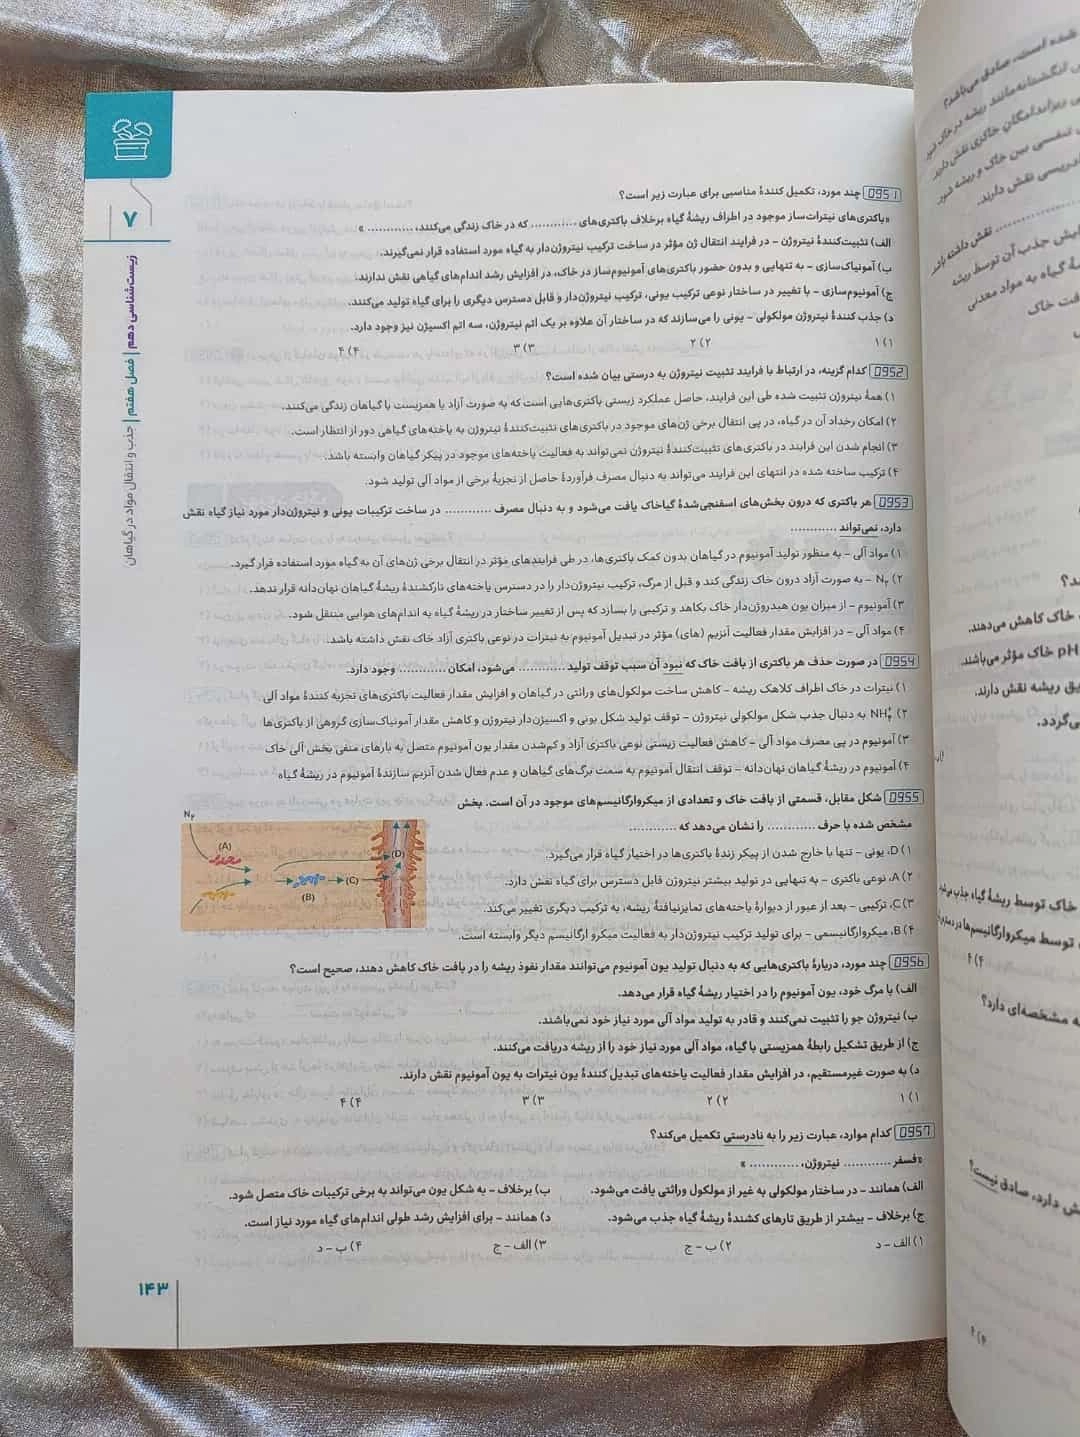 ۷
زیست‌شناسی دهم | فصل هفتم | جذب و انتقال مواد در گیاهان
0951 چند مورد، تکمیل کنندهٔ مناسبی برای عبارت زیر است؟
«باکتری‌های نیترات‌ساز موجود در اطراف ریشهٔ گیاه برخلاف باکتری‌های ............ که در خاک زندگی می‌کنند، ............ »
الف) تثبیت‌کنندهٔ نیتروژن – در فرایند انتقال ژن مؤثر در ساخت ترکیب نیتروژن‌دار به گیاه مورد استفاده قرار نمی‌گیرند.
ب) آمونیاک‌سازی – به تنهایی و بدون حضور باکتری‌های آمونیوم‌ساز در خاک، در افزایش رشد اندام‌های گیاهی نقش ندارند.
ج) آمونیوم‌سازی – با تغییر در ساختار نوعی ترکیب یونی، ترکیب نیتروژن‌دار و قابل دسترس دیگری را برای گیاه تولید می‌کنند.
د) جذب کنندهٔ نیتروژن مولکولی – یونی را می‌سازند که در ساختار آن علاوه بر یک اتم نیتروژن، سه اتم اکسیژن نیز وجود دارد.
۱) ۱ ۲) ۲ ۳) ۳ ۴) ۴
0952 کدام گزینه، در ارتباط با فرایند تثبیت نیتروژن به درستی بیان شده است؟
۱) همهٔ نیتروژن تثبیت شده طی این فرایند، حاصل عملکرد زیستی باکتری‌هایی است که به صورت آزاد یا همزیست با گیاهان زندگی می‌کنند.
۲) امکان رخداد آن در گیاه، در پی انتقال برخی ژن‌های موجود در باکتری‌های تثبیت‌کنندهٔ نیتروژن به یاخته‌های گیاهی دور از انتظار است.
۳) انجام شدن این فرایند در باکتری‌های تثبیت‌کنندهٔ نیتروژن نمی‌تواند به فعالیت یاخته‌های موجود در پیکر گیاهان وابسته باشد.
۴) ترکیب ساخته شده در انتهای این فرایند می‌تواند به دنبال مصرف فرآوردهٔ حاصل از تجزیهٔ برخی از مواد آلی تولید شود.
0953 هر باکتری که درون بخش‌های اسفنجی‌شدهٔ گیاخاک یافت می‌شود و به دنبال مصرف ............ در ساخت ترکیبات یونی و نیتروژن‌دار مورد نیاز گیاه نقش
دارد، نمی‌تواند ............
۱) مواد آلی – به منظور تولید آمونیوم در گیاهان بدون کمک باکتری‌ها، در طی فرایندهای مؤثر در انتقال برخی ژن‌های آن به گیاه مورد استفاده قرار گیرد.
۲) N₂ – به صورت آزاد درون خاک زندگی کند و قبل از مرگ، ترکیب نیتروژن‌دار را در دسترس یاخته‌های نازک‌شدهٔ ریشهٔ گیاهان نهان‌دانه قرار ندهد.
۳) آمونیوم – از میزان یون هیدروژن‌دار خاک بکاهد و ترکیبی را بسازد که پس از تغییر ساختار در ریشهٔ گیاه به اندام‌های هوایی منتقل شود.
۴) مواد آلی – در افزایش مقدار فعالیت آنزیم (های) مؤثر در تبدیل آمونیوم به نیترات در نوعی باکتری آزاد خاک نقش داشته باشد.
0954 در صورت حذف هر باکتری از بافت خاک که نبود آن سبب توقف تولید ............ می‌شود، امکان ............ وجود دارد.
۱) نیترات در خاک اطراف کلاهک ریشه – کاهش ساخت مولکول‌های وراثتی در گیاهان و افزایش مقدار فعالیت باکتری‌های تجزیه کنندهٔ مواد آلی
۲) NH₄⁺ به دنبال جذب شکل مولکولی نیتروژن – توقف تولید شکل یونی و اکسیژن‌دار نیتروژن و کاهش مقدار آمونیاک‌سازی گروهی از باکتری‌ها
۳) آمونیوم در پی مصرف مواد آلی – کاهش فعالیت زیستی نوعی باکتری آزاد و کم‌شدن مقدار یون آمونیوم متصل به بارهای منفی بخش آلی خاک
۴) آمونیوم در ریشهٔ گیاهان نهان‌دانه – توقف انتقال آمونیوم به سمت برگ‌های گیاهان و عدم فعال شدن آنزیم سازندهٔ آمونیوم در ریشهٔ گیاه
0955 شکل مقابل، قسمتی از بافت خاک و تعدادی از میکروارگانیسم‌های موجود در آن است. بخش
مشخص شده با حرف ............ را نشان می‌دهد که ............
۱) D، یونی – تنها با خارج شدن از پیکر زندهٔ باکتری‌ها در اختیار گیاه قرار می‌گیرد.
۲) A، نوعی باکتری – به تنهایی در تولید بیشتر نیتروژن قابل دسترس برای گیاه نقش دارد.
۳) C، ترکیبی – بعد از عبور از دیوارهٔ یاخته‌های تمایزنیافتهٔ ریشه، به ترکیب دیگری تغییر می‌کند.
۴) B، میکروارگانیسمی – برای تولید ترکیب نیتروژن‌دار به فعالیت میکرو ارگانیسم دیگر وابسته است.
N₂
(A)
(B)
(C)
(D)
0956 چند مورد، دربارهٔ باکتری‌هایی که به دنبال تولید یون آمونیوم می‌توانند مقدار نفوذ ریشه را در بافت خاک کاهش دهند، صحیح است؟
الف) با مرگ خود، یون آمونیوم را در اختیار ریشهٔ گیاه قرار می‌دهد.
ب) نیتروژن جو را تثبیت نمی‌کنند و قادر به تولید مواد آلی مورد نیاز خود نمی‌باشند.
ج) از طریق تشکیل رابطهٔ همزیستی با گیاه، مواد آلی مورد نیاز خود را از ریشه دریافت می‌کنند.
د) به صورت غیرمستقیم، در افزایش مقدار فعالیت یاخته‌های تبدیل کنندهٔ یون نیترات به یون آمونیوم نقش دارند.
۱) ۱ ۲) ۲ ۳) ۳ ۴) ۴
0957 کدام موارد، عبارت زیر را به نادرستی تکمیل می‌کند؟
«فسفر ............ نیتروژن، ............ »
الف) همانند – در ساختار مولکولی به غیر از مولکول وراثتی یافت می‌شود. ب) برخلاف – به شکل یون می‌تواند به برخی ترکیبات خاک متصل شود.
ج) برخلاف – بیشتر از طریق تارهای کشندهٔ ریشهٔ گیاه جذب می‌شود. د) همانند – برای افزایش رشد طولی اندام‌های گیاه مورد نیاز است.
۱) الف – د ۲) ب – ج ۳) الف – ج ۴) ب – د
۱۴۳
شده است، صادق می‌باشد؟
نقش داشته باشد
خاک کاهش می‌دهند.
pH خاک مؤثر می‌باشند.
ریق ریشه نقش دارند.
می‌گردد.
خاک توسط ریشهٔ گیاه جذب می‌شود
۴) ۴
ه مشخصه‌ای دارد؟
ش دارد، صادق نیست؟
۴) ۴